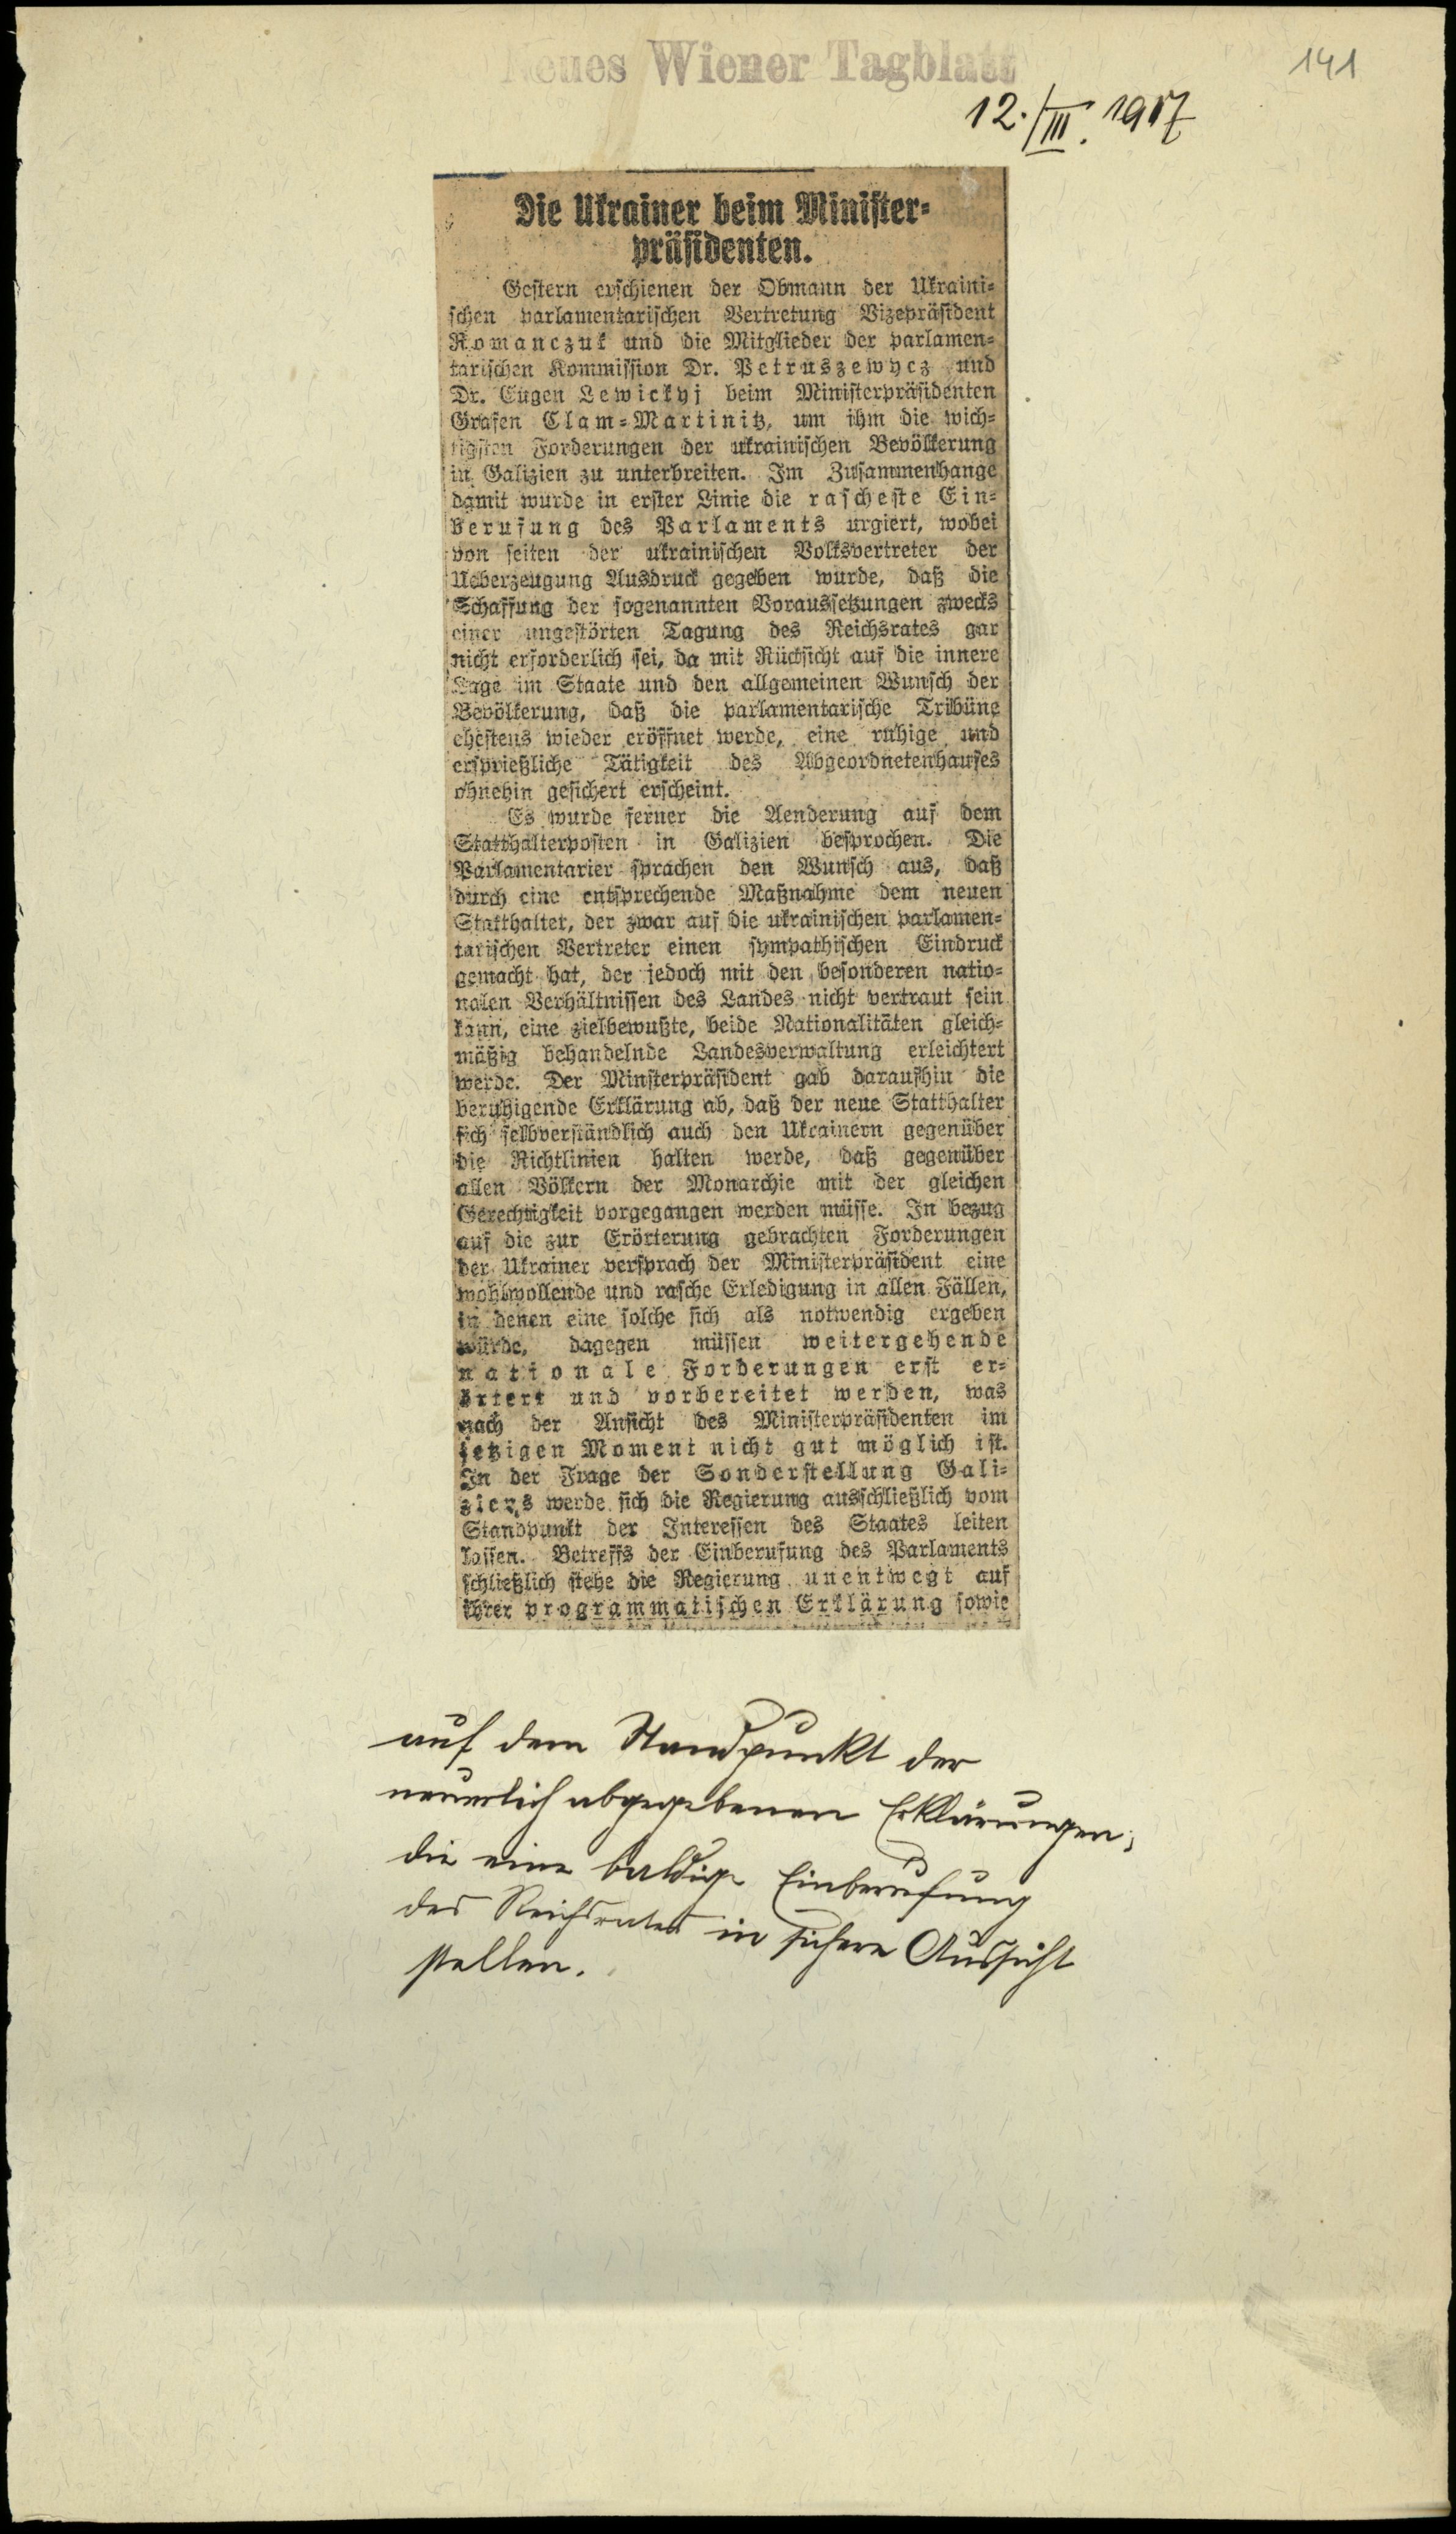 Neues Wiener Tagblatt
141
12./III. 1917
Die Ukrainer beim Minister-
präsidenten.
Gestern erschienen der Obmann der Ukraini-
schen parlamentarischen Vertretung Vizepräsident
Romanczuk und die Mitglieder der parlamen-
tarischen Kommission Dr. Petruszewycz und
Dr. Eugen Lewickyj beim Ministerpräsidenten
Grafen Clam-Martinitz, um ihm die wich-
tigsten Forderungen der ukrainischen Bevölkerung
in Galizien zu unterbreiten. Im Zusammenhange
damit wurde in erster Linie die rascheste Ein-
berufung des Parlaments urgiert, wobei
von seiten der ukrainischen Volksvertreter der
Ueberzeugung Ausdruck gegeben wurde, daß die
Schaffung der sogenannten Voraussetzungen zwecks
einer ungestörten Tagung des Reichsrates gar
nicht erforderlich sei, da mit Rücksicht auf die innere
Lage im Staate und den allgemeinen Wunsch der
Bevölkerung, daß die parlamentarische Tribüne
ehestens wieder eröffnet werde, eine ruhige und
ersprießliche Tätigkeit des Abgeordnetenhauses
ohnehin gesichert erscheint.
Es wurde ferner die Aenderung auf dem
Statthalterposten in Galizien besprochen. Die
Parlamentarier sprachen den Wunsch aus, daß
durch eine entsprechende Maßnahme dem neuen
Statthalter, der zwar auf die ukrainischen parlamen-
tarischen Vertreter einen sympathischen Eindruck
gemacht hat, der jedoch mit den besonderen natio-
nalen Verhältnissen des Landes nicht vertraut sein
kann, eine zielbewußte, beide Nationalitäten gleich-
mäßig behandelnde Landesverwaltung erleichtert
werde. Der Minsterpräsident gab daraufhin die
beruhigende Erklärung ab, daß der neue Statthalter
sich selbverständlich auch den Ukrainern gegenüber
die Richtlinien halten werde, daß gegenüber
allen Völkern der Monarchie mit der gleichen
Gerechtigkeit vorgegangen werden müsse. In bezug
auf die zur Erörterung gebrachten Forderungen
der Ukrainer versprach der Ministerpräsident eine
wohlwollende und rasche Erledigung in allen Fällen,
in denen eine solche sich als notwendig ergeben
würde, dagegen müssen weitergehende
nationale Forderungen erst er-
örtert und vorbereitet werden, was
nach der Ansicht des Ministerpräsidenten im
jetzigen Moment nicht gut möglich ist.
In der Frage der Sonderstellung Gali-
ziens werde sich die Regierung ausschließlich vom
Standpunkt der Interessen des Staates leiten
lassen. Betreffs der Einberufung des Parlaments
schließlich stehe die Regierung unentwegt auf
ihrer programmatischen Erklärung sowie
auf dem Standpunkt der
neuerlich abgegebenen Erklärungen,
die eine baldige Einberufung
des Reichsrates in sichere Aussicht
stellen.